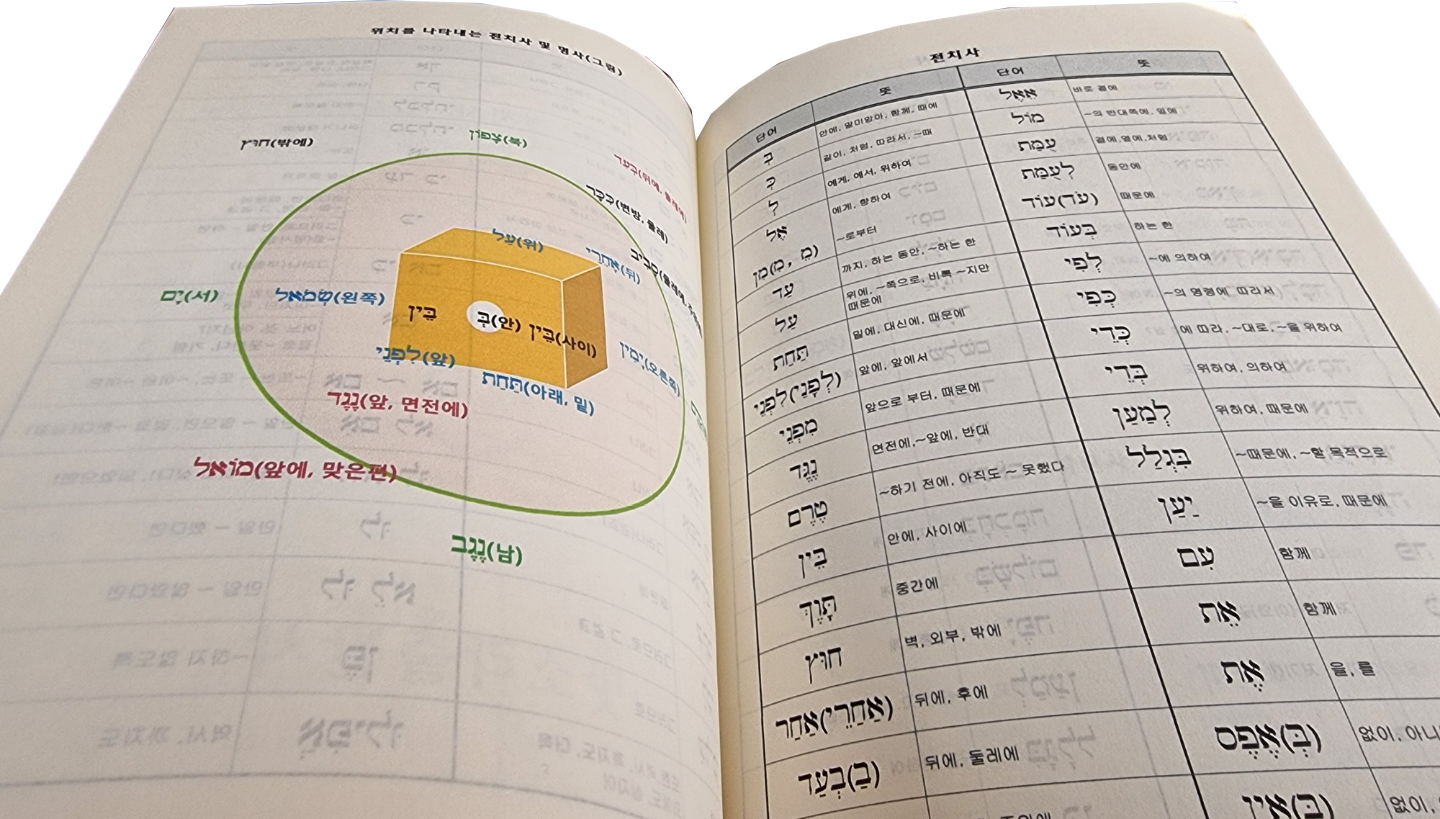 위치를 나타내는 전치사 및 명사(그림)
חוּץ(밖에)
צָפוֹן(북)
בְּעַד(뒤에, 둘레에)
כִּכָּר(변방, 둘레)
עַל(위)
אַחֲרֵי(뒤)
יָם(서)
שְׂמֹאל(왼쪽)
בֵּין
בְּ(안)
בֵּין(사이)
יָמִין(오른쪽)
לִפְנֵי(앞)
תַּחַת(아래, 밑)
נֶגֶד(앞, 면전에)
מוֹאל(앞에, 맞은편)
נֶגֶב(남)
전치사
단어 뜻 단어 뜻
בְּ 안에, 말미암아, 함께, 때에 אֵצֶל 바로 곁에
כְּ 같이, 처럼, 따라서, ~때 מוֹל ~의 반대쪽에, 옆에
לְ 에게, 에서, 위하여 עֻמַּת 곁에 옆에,처럼
אֶל 에게, 향하여 לְעֻמַּת 동안에
מִן(מִ, מֵ) ~로부터 עוֹד(עֹד) 때문에
עַד 까지, 하는 동안, ~하는 한 בְּעוֹד 하는 한
עַל 위에, ~쪽으로, 비록 ~지만 때문에 לְפִי ~에 의하여
תַּחַת 밑에, 대신에, 때문에 כְּפִי ~의 명령에 따라서
לִפְנֵי(לִפְנֵי) 앞에, 앞에서 כְּדֵי 에 따라, ~대로, ~을 위하여
מִפְּנֵי 앞으로 부터, 때문에 בְּדֵי 위하여, 의하여
נֶגֶד 면전에,~앞에, 반대 לְמַעַן 위하여, 때문에
טֶרֶם ~하기 전에, 아직도 ~ 못했다 בִּגְלַל ~때문에, ~할 목적으로
בֵּין 안에, 사이에 יַעַן ~을 이유로, 때문에
תָּוֶךְ 중간에 עִם 함께
חוּץ 벽, 외부, 밖에 אֵת 함께
אַחַר(אַחֲרֵי) 뒤에, 후에 אֶת 을, 를
בְּעַד(בַּ) 뒤에, 둘레에 אֶפֶס(בְּ) 없이,
אֵין(בְּ) 없이,